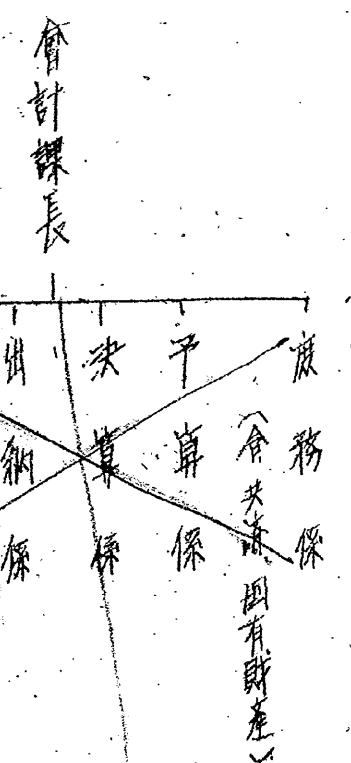 會計課長
庶務係
（含共済、国有財産）
予算係
決算係
出納係